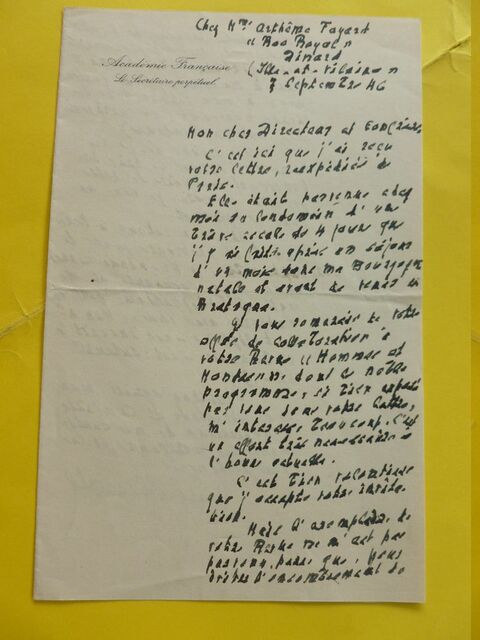 Chez Mme Arthème Fayard
"Roc Royal"
Dinard
(Ille-et-Vilaine)
7 Septembre 46
Académie Française
Le Secrétaire perpétuel
Mon cher Directeur et Confrère
C'est ici que j'ai reçu
votre lettre, réexpédiée de
Paris.
Elle était parvenue chez
moi le lendemain d'une
brève escale de 4 jours que
j'y ai faite après un séjour
d'un mois dans ma Bourgogne
natale et avant de venir en
Bretagne.
Je vous remercie de votre
offre de collaboration à
votre Revue "Hommes et
Mondes", dont le noble
programme, si bien exposé
par vous dans votre lettre,
m'intéresse beaucoup. C'est
un effort très nécessaire à
l'heure actuelle.
C'est bien volontiers
que j'accepte votre invita-
tion.
Mais l'exemplaire de
votre Revue ne m'est pas
parvenu, parce que, pour
d'encombrement de